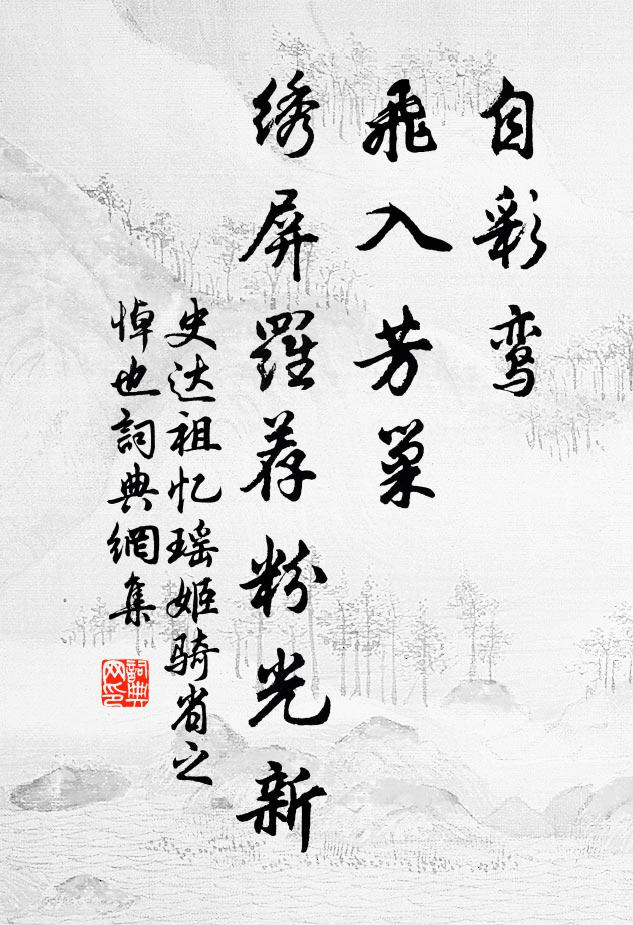 自彩鸾
飞入芳巢
绣屏羅荐粉光新
史达祖忆瑶姬骑省之
悼也詞典網集
詞典网印